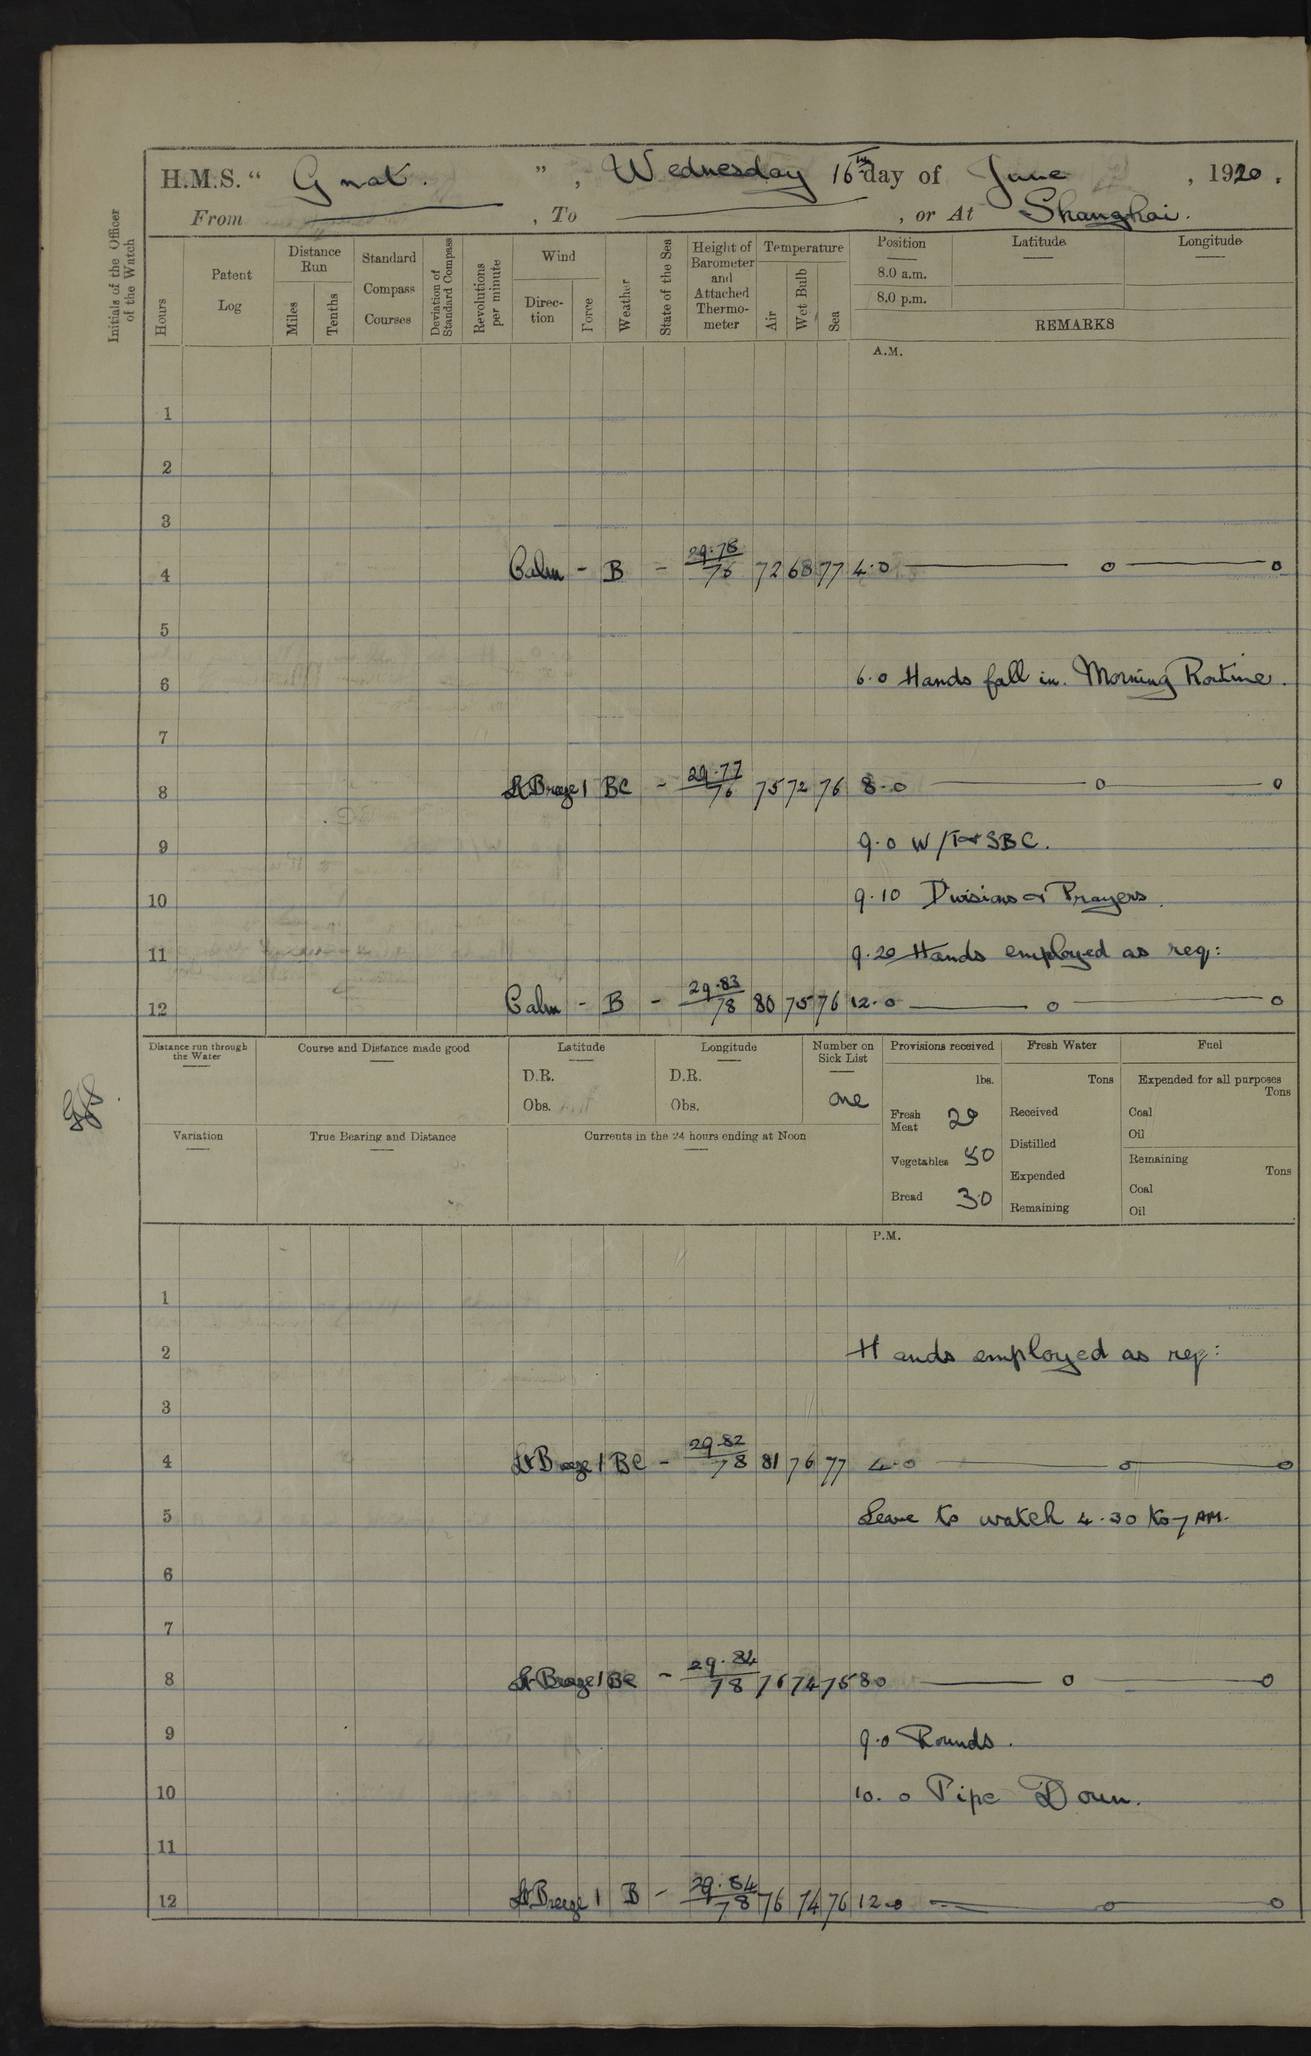 H.M.S. " Gnat. " , Wednesday 16th day of June , 1920 .
From , To , or At Shanghai.
Initials of the Officer of the Watch
Hours
Patent Log
Distance Run
Miles
Tenths
Standard Compass Courses
Deviation of Standard Compass
Revolutions per minute
Wind
Direc-tion
Force
Weather
State of the Sea
Height of Barometer and Attached Thermo-meter
Temperature
Air
Wet Bulb
Sea
Position Latitude Longitude
8.0 a.m.
8.0 p.m.
REMARKS
A.M.
1
2
3
4 Calm - B - 29.78/76 72 68 77 4.0
5
6 6.0 Hands fall in. Morning Routine.
7
8 Lt Breeze 1 BC - 29.77/76 75 72 76 8.0
9 9.0 W/T & SBC.
10 9.10 Divisions & Prayers.
11 9.20 Hands employed as req:
12 Calm - B - 29.83/78 80 75 76 12.0
Distance run through the Water
Course and Distance made good
Latitude
D.R.
Obs.
Longitude
D.R.
Obs.
Number on Sick List
one
Provisions received
lbs.
Fresh Meat 20
Vegetables 50
Bread 30
Fresh Water
Tons
Received
Distilled
Expended
Remaining
Fuel
Expended for all purposes
Tons
Coal
Oil
Remaining
Tons
Coal
Oil
Variation
True Bearing and Distance
Currents in the 24 hours ending at Noon
P.M.
1
2 Hands employed as req:
3
4 Lt Breeze 1 BC - 29.82/78 81 76 77 4.0
5 Leave to watch 4.30 to 7 AM.
6
7
8 Lt Breeze 1 BC - 29.84/78 76 74 75 8.0
9 9.0 Rounds.
10 10.0 Pipe Down.
11
12 Lt Breeze 1 B - 29.84/78 76 74 76 12.0